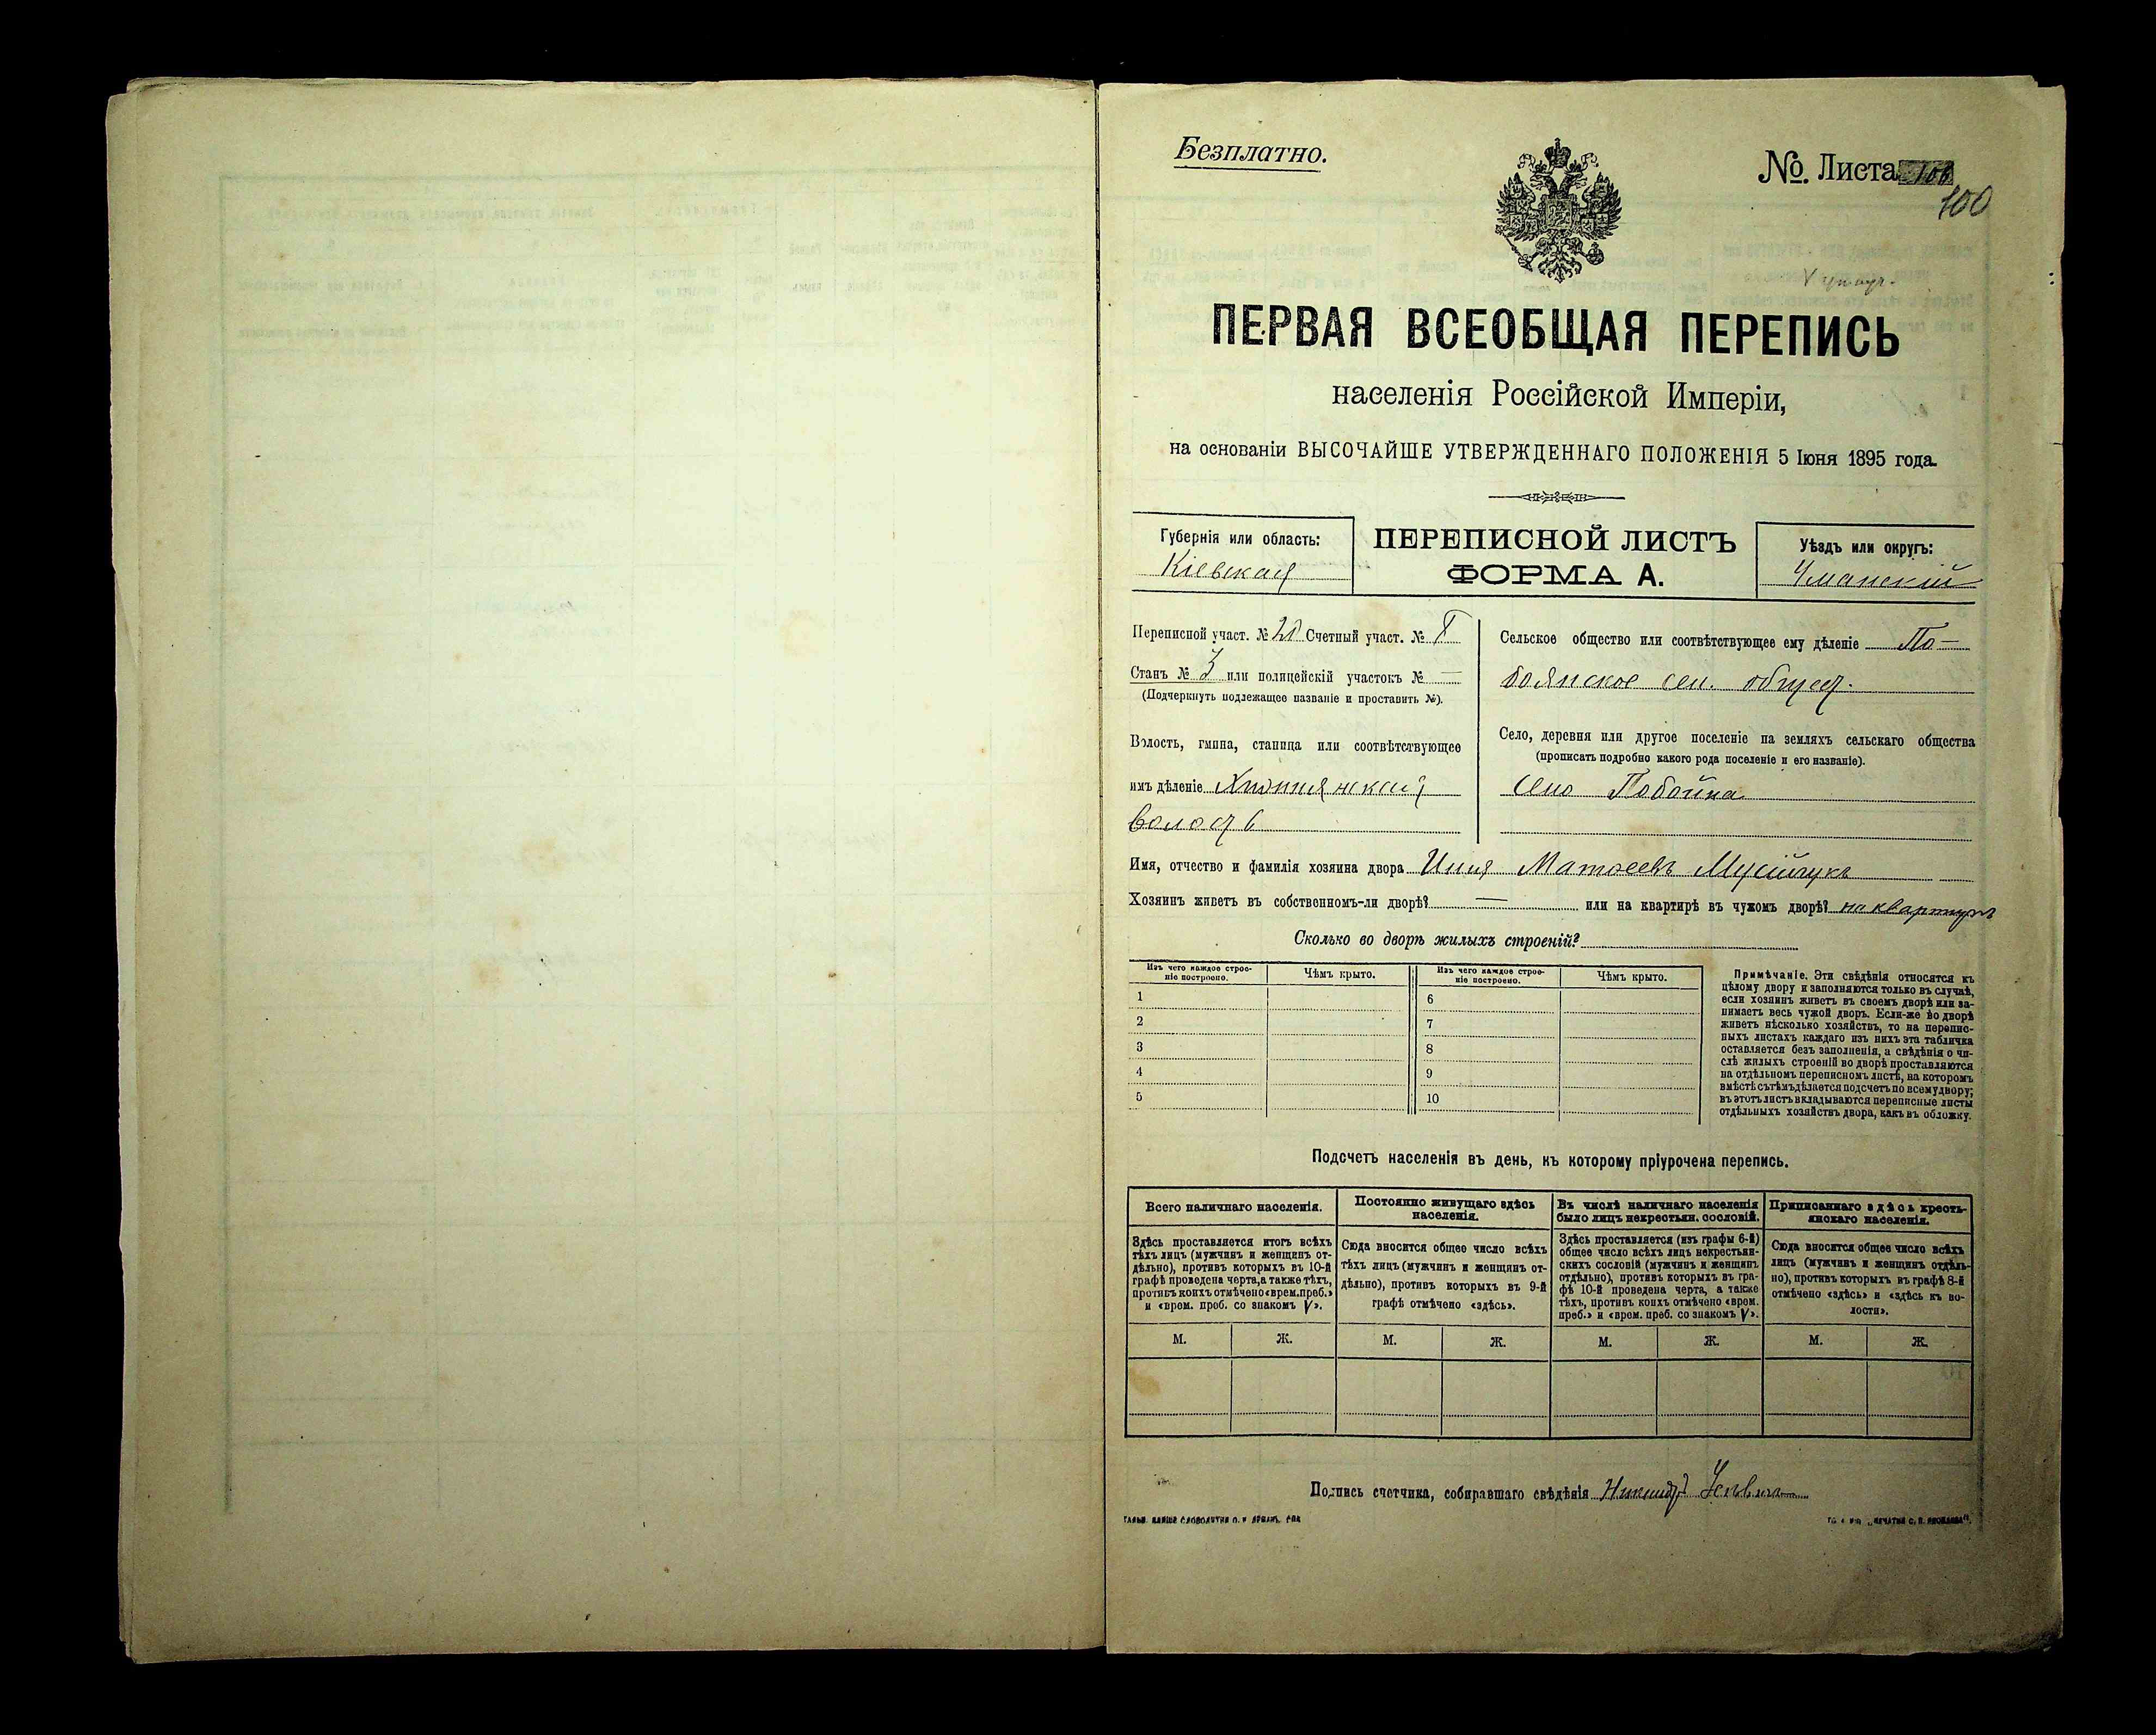 Безплатно.
№. Листа 100
100
ПЕРВАЯ ВСЕОБЩАЯ ПЕРЕПИСЬ
населенія Россійской Имперіи,
на основаніи ВЫСОЧАЙШЕ УТВЕРЖДЕННАГО ПОЛОЖЕНІЯ 5 Іюня 1895 года.
Губернія или область:
Кіевская
ПЕРЕПИСНОЙ ЛИСТЪ
ФОРМА А.
Уѣздъ или округъ:
Уманскій
Переписной участ. № 20 Счетный участ. №
Станъ № 3 или полицейскій участокъ № —
(Подчеркнуть подлежащее названіе и проставить №).
Волость, гмина, станица или соотвѣтствующее
имъ дѣленіе
волость
Сельское общество или соотвѣтствующее ему дѣленіе По-
боянское сел. общест.
Село, деревня или другое поселеніе на земляхъ сельскаго общества
(прописать подробно какого рода поселеніе и его названіе).
село Побойна
Имя, отчество и фамилія хозяина двора Илля Матвеевъ Мусійчукъ
Хозяинъ живетъ въ собственномъ-ли дворѣ? — или на квартирѣ въ чужомъ дворѣ? на квартирѣ
Сколько во дворѣ жилыхъ строеній?
Изъ чего каждое строе-
ніе построено.
Чѣмъ крыто.
Изъ чего каждое строе-
ніе построено.
Чѣмъ крыто.
1
2
3
4
5
6
7
8
9
10
Примѣчаніе. Эти свѣдѣнія относятся къ
цѣлому двору и заполняются только въ случаѣ,
если хозяинъ живетъ въ своемъ дворѣ или за-
нимаетъ весь чужой дворъ. Если-же во дворѣ
живетъ нѣсколько хозяйствъ, то на перепис-
ныхъ листахъ каждаго изъ нихъ эта табличка
оставляется безъ заполненія, а свѣдѣнія о чи-
слѣ жилыхъ строеній во дворѣ проставляются
на отдѣльномъ переписномъ листѣ, на которомъ
вмѣстѣ съ тѣмъ дѣлается подсчетъ по всему двору;
въ этотъ листъ вкладываются переписные листы
отдѣльныхъ хозяйствъ двора, какъ въ обложку.
Подсчетъ населенія въ день, къ которому пріурочена перепись.
Всего наличнаго населенія.
Здѣсь проставляется итогъ всѣхъ
тѣхъ лицъ (мужчинъ и женщинъ от-
дѣльно), противъ которыхъ въ 10-й
графѣ проведена черта, а также тѣхъ,
противъ коихъ отмѣчено «врем. преб.»
и «врем. преб. со знакомъ V».
М.
Ж.
Постоянно живущаго здѣсь
населенія.
Сюда вносится общее число всѣхъ
тѣхъ лицъ (мужчинъ и женщинъ от-
дѣльно), противъ которыхъ въ 9-й
графѣ отмѣчено «здѣсь».
М.
Ж.
Въ числѣ наличнаго населенія
было лицъ некрестьян. сословій.
Здѣсь проставляется (изъ графы 6-й)
общее число всѣхъ лицъ некрестьян-
скихъ сословій (мужчинъ и женщинъ
отдѣльно), противъ которыхъ въ гра-
фѣ 10-й проведена черта, а также
тѣхъ, противъ коихъ отмѣчено «врем.
преб.» и «врем. преб. со знакомъ V».
М.
Ж.
Приписаннаго здѣсь кресть-
янскаго населенія.
Сюда вносится общее число всѣхъ
лицъ (мужчинъ и женщинъ отдѣль-
но), противъ которыхъ въ графѣ 8-й
отмѣчено «здѣсь» и «здѣсь къ во-
лости».
М.
Ж.
Подпись счетчика, собиравшаго свѣдѣнія